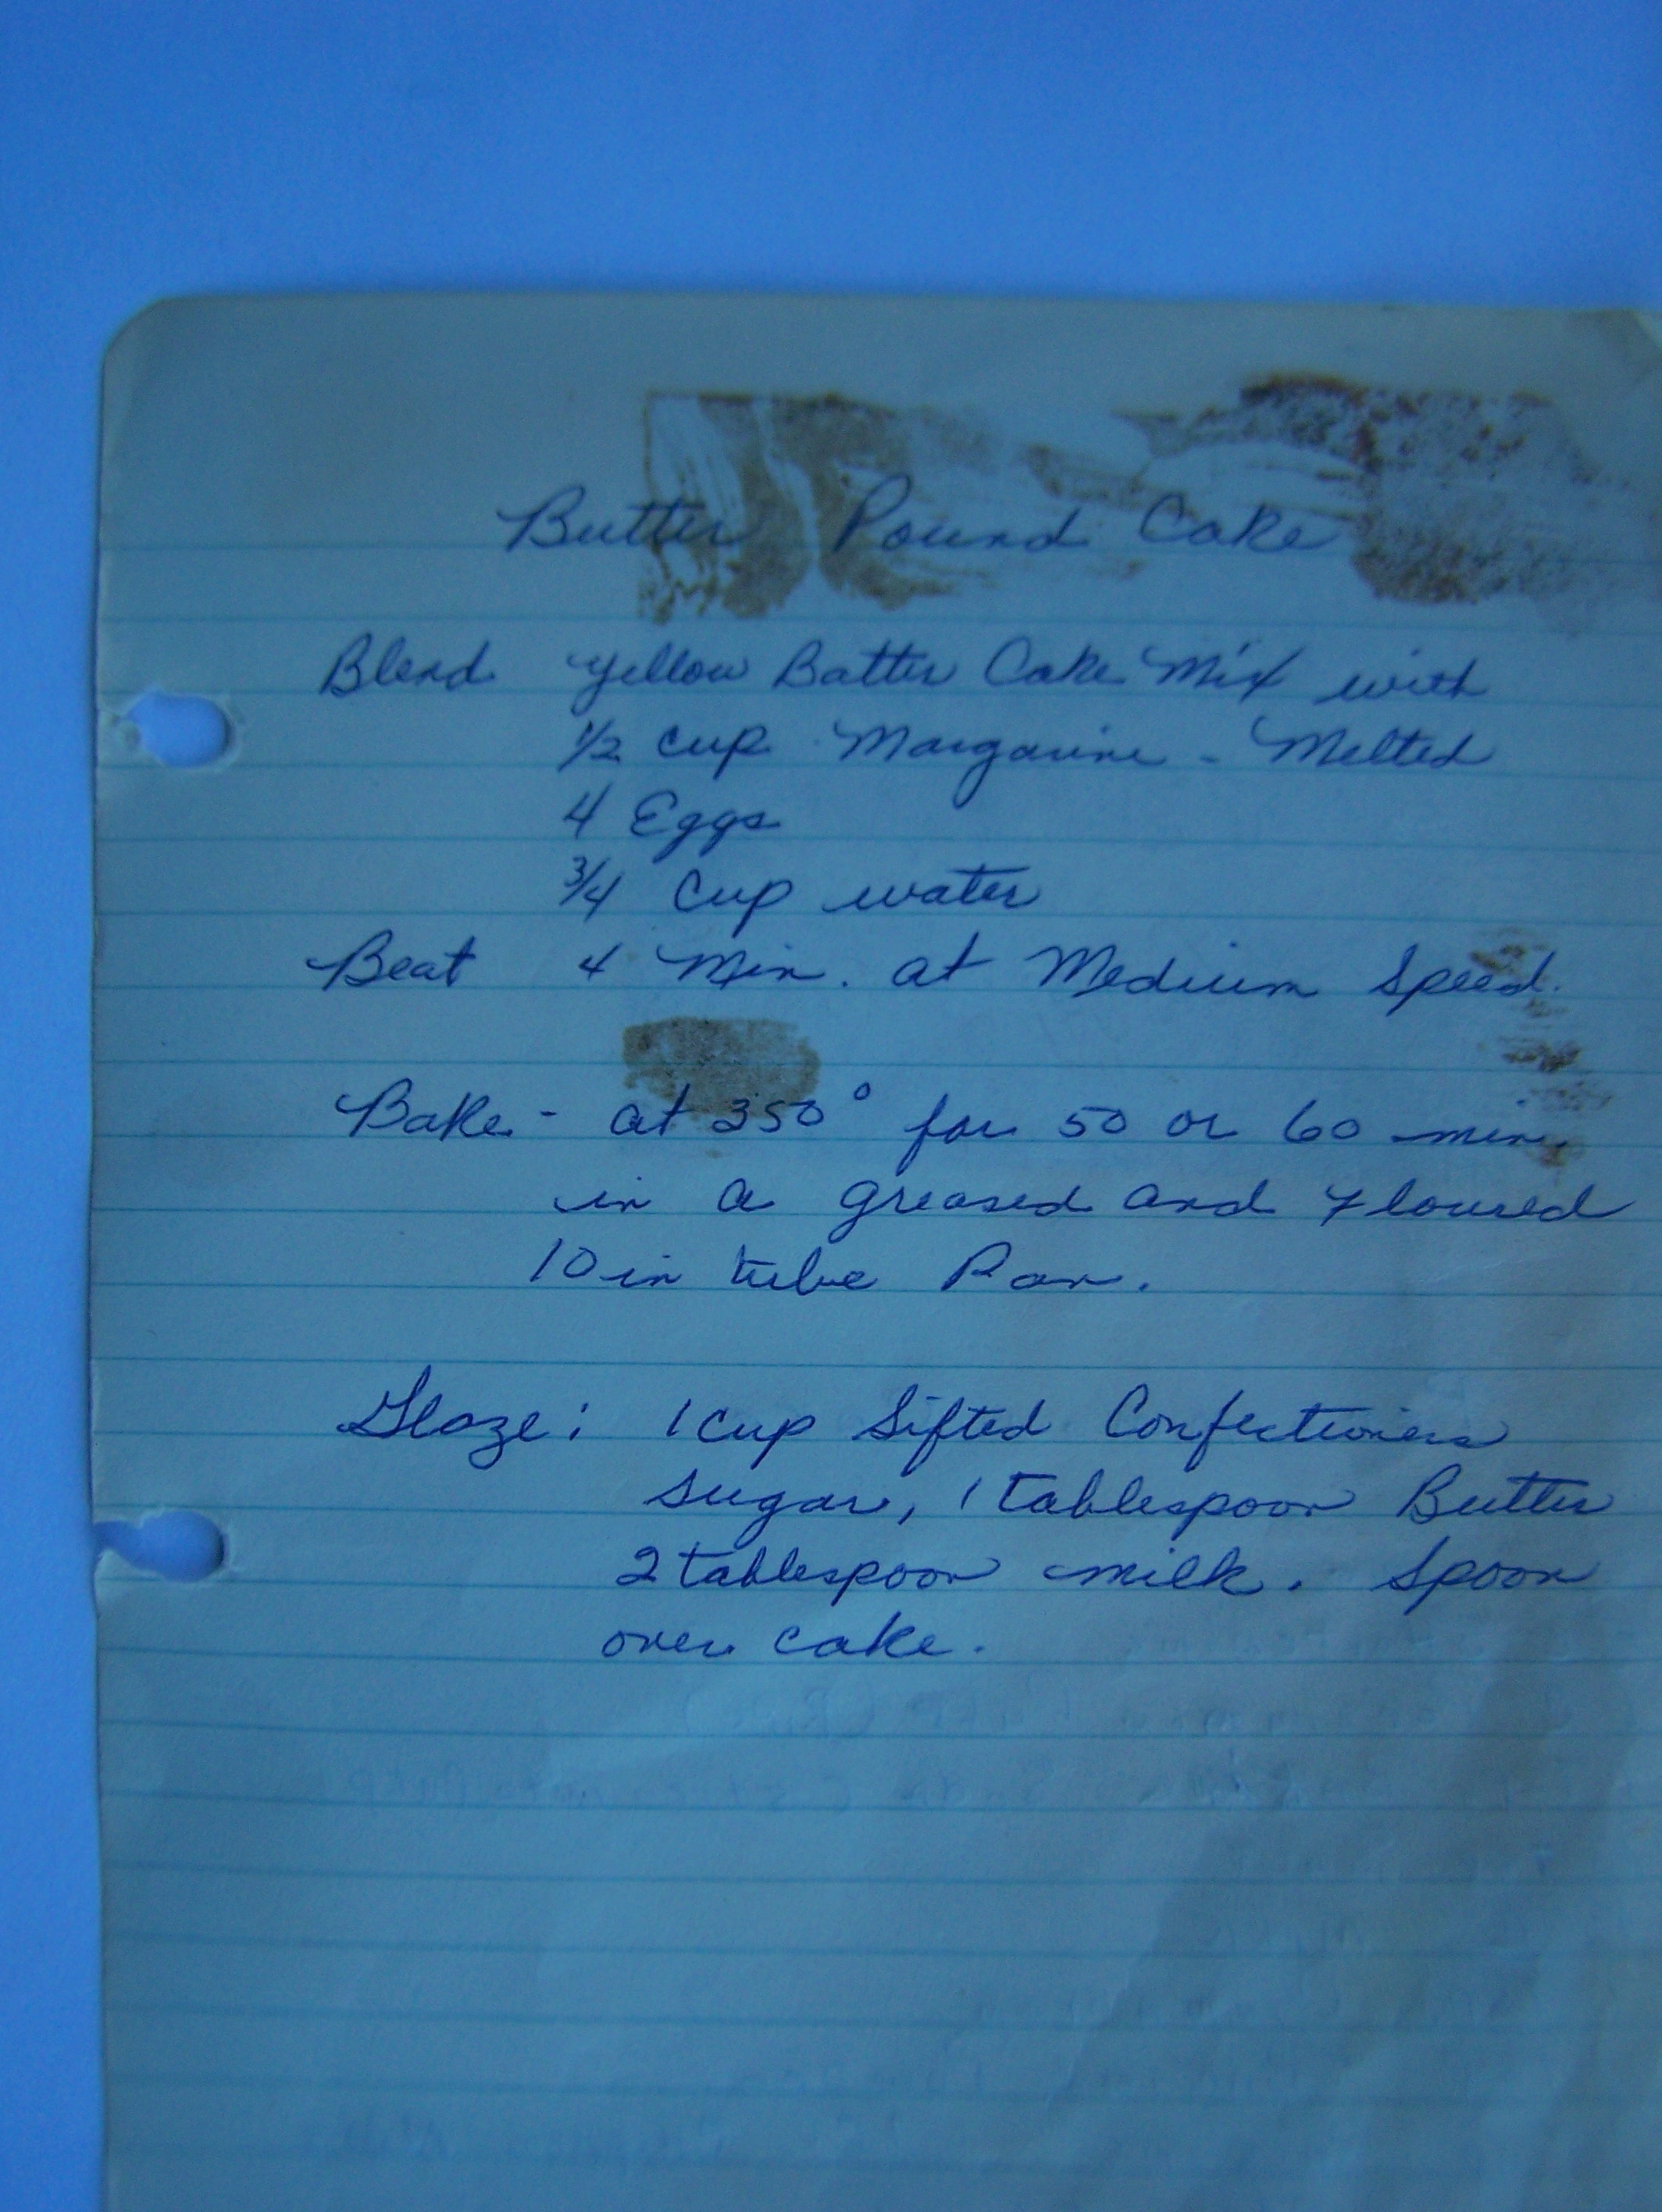 Butter Pound Cake
Blend yellow Batter Cake Mix with
1/2 cup Margarine - Melted
4 Eggs
3/4 Cup water
Beat 4 Min. at Medium Speed.
Bake - at 350° for 50 or 60 min.
in a greased and floured
10 in tube Pan.
Glaze: 1 cup Sifted Confectioners
Sugar, 1 tablespoon Butter
2 tablespoon milk. Spoon
over cake.